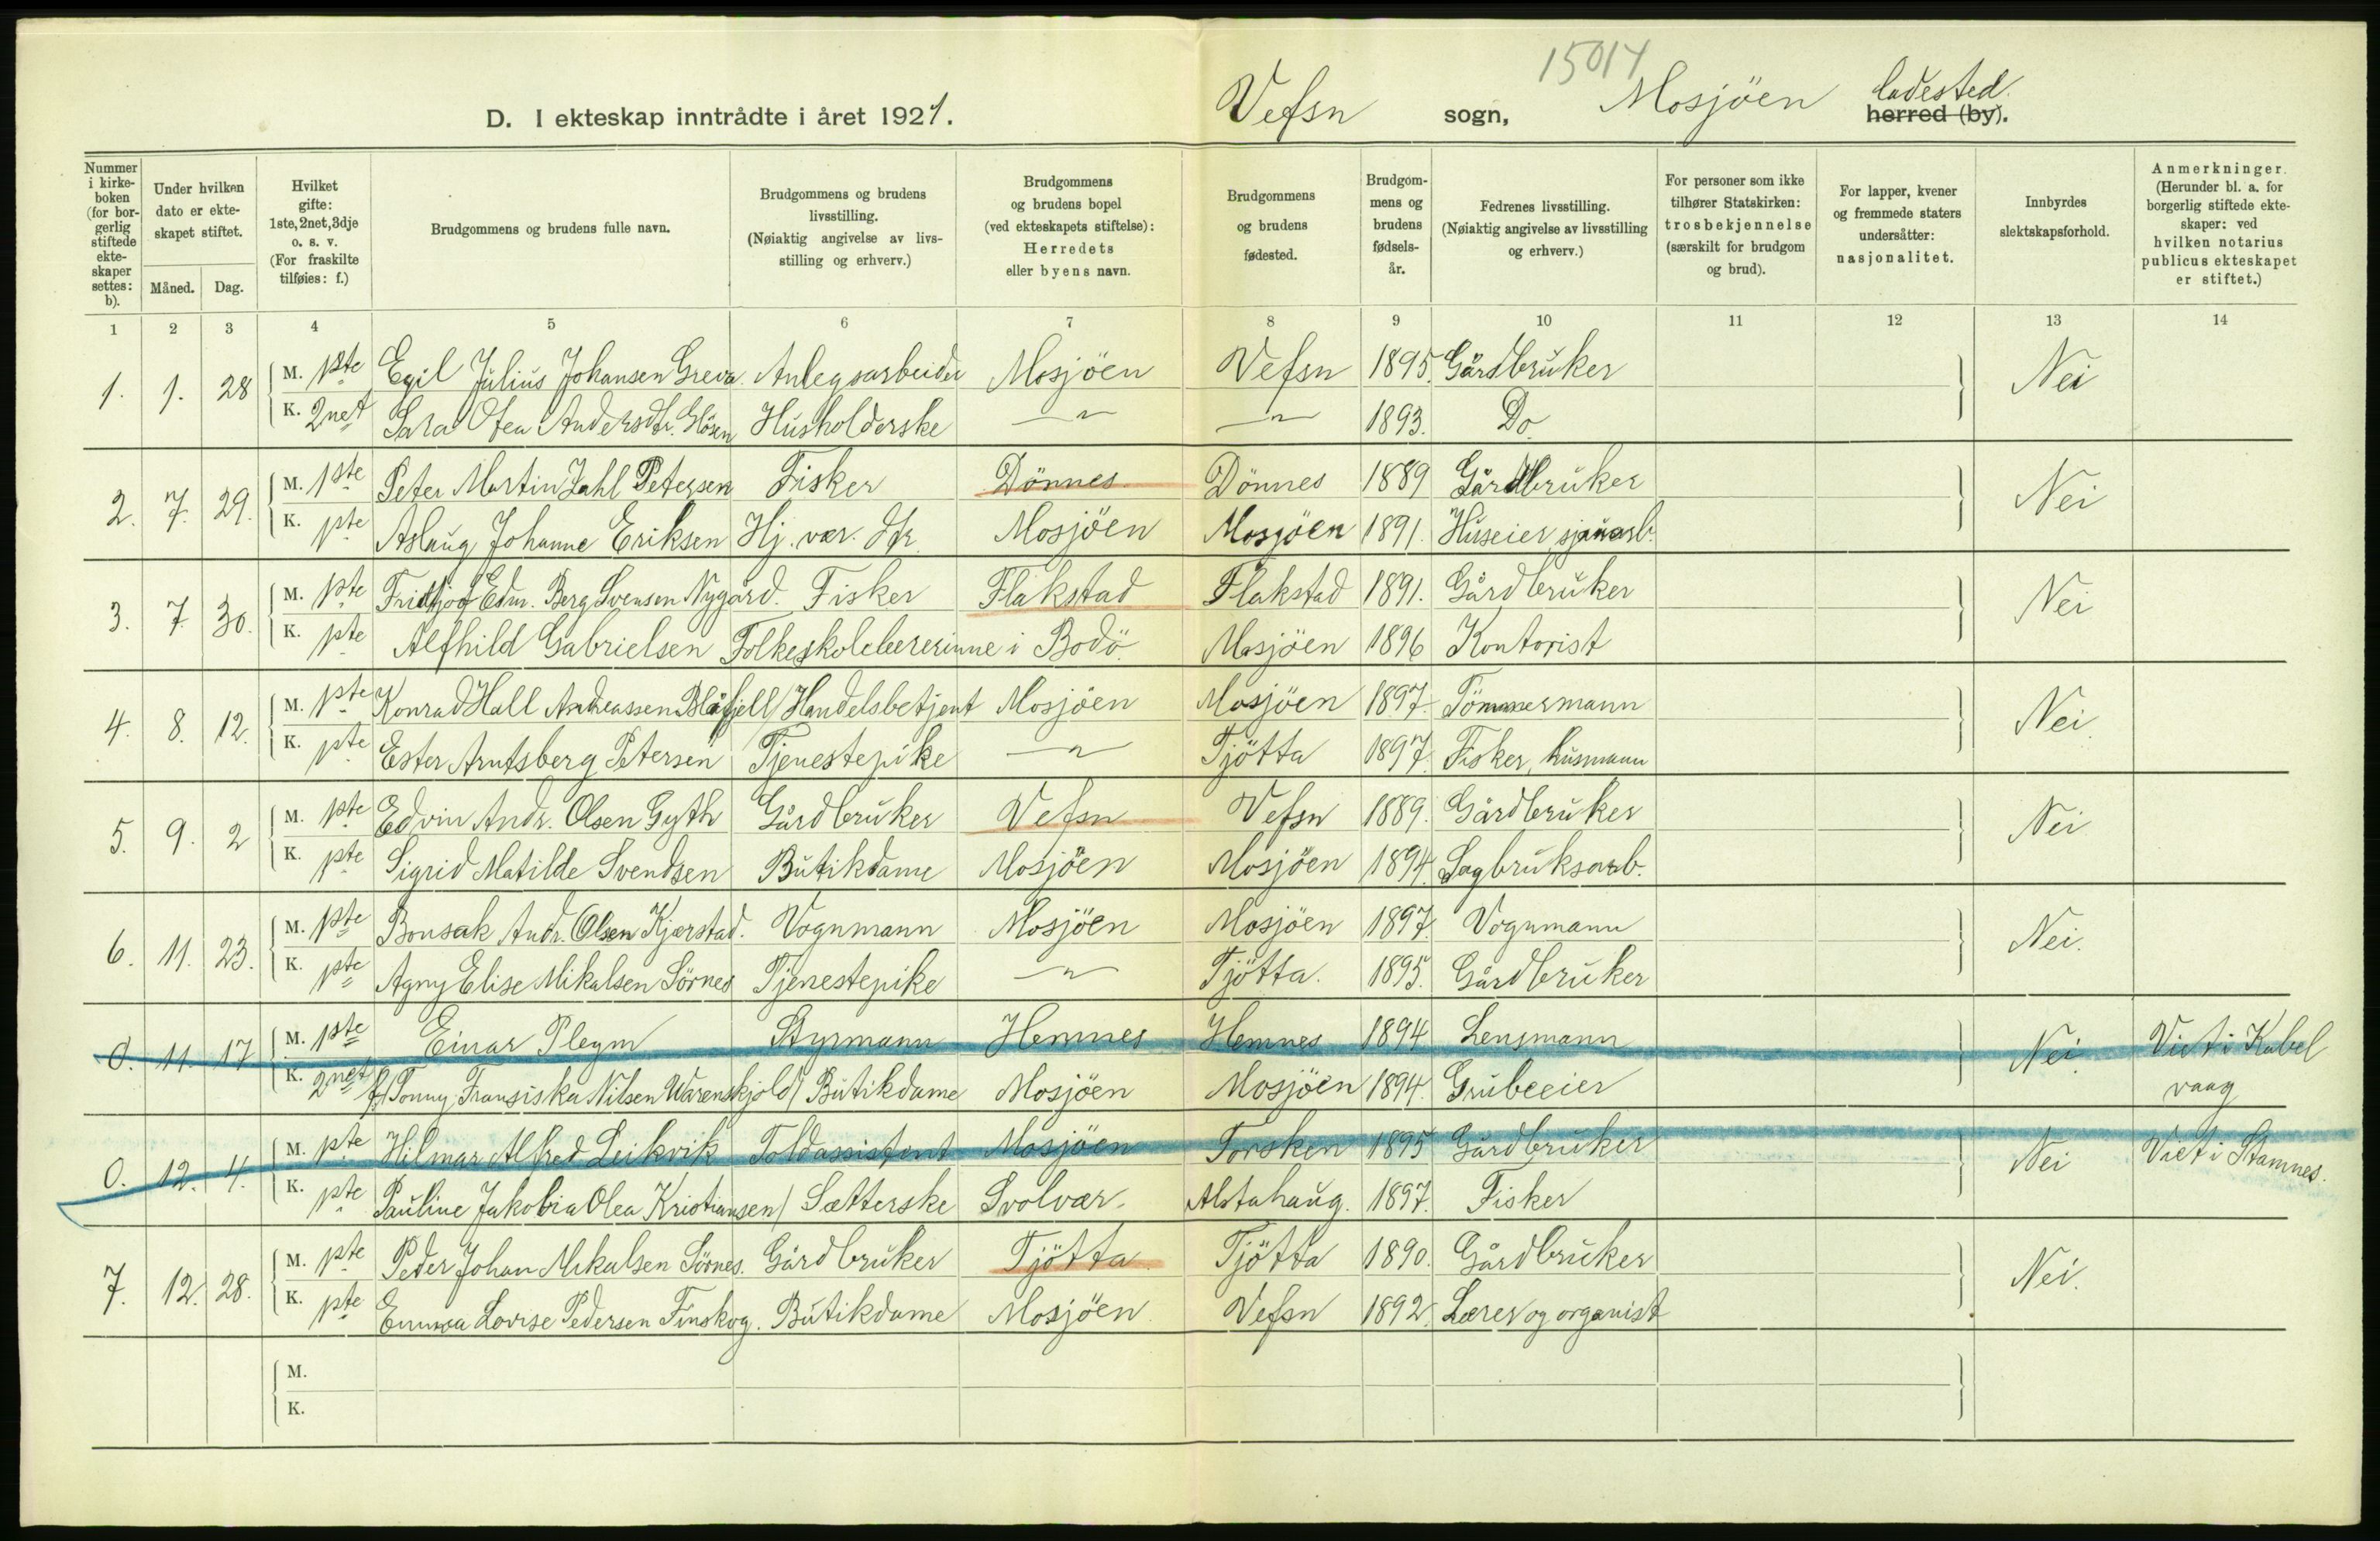 15014
D. I ekteskap inntrådte i året 1921. Vefsn sogn, Mosjöen ladested herred (by).
Nummer i kirkeboken (for borgerlig stiftede ekteskaper settes: b).
Under hvilken dato er ekteskapet stiftet.
Måned. Dag.
Hvilket gifte: 1ste, 2net, 3dje o. s. v. (For fraskilte tilføies: f.)
Brudgommens og brudens fulle navn.
Brudgommens og brudens livsstilling. (Nøiaktig angivelse av livsstilling og erhverv.)
Brudgommens og brudens bopel (ved ekteskapets stiftelse): Herredets eller byens navn.
Brudgommens og brudens fødested.
Brudgommens og brudens fødselsår.
Fedrenes livsstilling. (Nøiaktig angivelse av livsstilling og erhverv.)
For personer som ikke tilhører Statskirken: trosbekjennelse (særskilt for brudgom og brud).
For lapper, kvener og fremmede staters undersåtter: nasjonalitet.
Innbyrdes slektskapsforhold.
Anmerkninger. (Herunder bl. a. for borgerlig stiftede ekteskaper: ved hvilken notarius publicus ekteskapet er stiftet.)
1 2 3 4 5 6 7 8 9 10 11 12 13 14
1. 1. 28 M. 1ste Egil Julius Johansen Greva. Anlegsarbeider Mosjöen Vefsn 1895. Gårdbruker Nei
K. 2net Sara Otea Andersdtr. Glösen Husholderske —"— —"— 1893. Do
2. 7. 29. M. 1ste Peter Martin Zahl Petersen Fisker Dönnes Dönnes 1889 Gårdbruker Nei
K. 1ste Aslaug Johanne Eriksen Hj. vær. dtr. Mosjöen Mosjöen 1891. Huseier, sjauarb.
3. 7. 30. M. 1ste Fridtjof Edm. Berg Svensen Nygård. Fisker Flakstad Flakstad 1891. Gårdbruker Nei
K. 1ste Alfhild Gabrielsen Folkeskolelærerinne i Bodö Mosjöen 1896 Kontorist
4. 8. 12. M. 1ste Konrad Hall Andreassen Blåfjell / Handelsbetjent Mosjöen Mosjöen 1897. Tömmermann Nei.
K. 1ste Ester Arntsberg Petersen Tjenestepike —"— Tjötta 1897. Fisker, husmann
5. 9. 2 M. 1ste Edvin Andr. Olsen Gyth Gårdbruker Vefsn Vefsn 1889. Gårdbruker Nei
K. 1ste Sigrid Matilde Svendsen Butikdame Mosjöen Mosjöen 1894. Sagbruksarb.
6. 11. 23. M. 1ste Bonsak Andr. Olsen Kjærstad. Vognmann Mosjöen Mosjöen 1897. Vognmann Nei.
K. 1ste Agny Elise Mikalsen Sörnes Tjenestepike —"— Tjötta. 1895. Gårdbruker
0. 11. 17 M. 1ste Einar Plegm Styrmann Hemnes Hemnes 1894 Lensmann Nei. Viet i Kabel
K. 2net f. / Tonny Fransiska Nilsen Warenskjold / Butikdame Mosjöen Mosjöen 1894. Grubeeier vaag
0. 12. 4. M. 1ste Hilmar Alfred Leikvik Toldassistent Mosjöen Torsken 1895 Gårdbruker Nei Viet i Stamnes.
K. 1ste Pauline Jakobia Olea Kristiansen / Sætterske Svolvær. Alstahaug. 1897. Fisker
7. 12. 28. M. 1ste Peder Johan Mikalsen Sörnes. Gårdbruker Tjötta. Tjötta 1890. Gårdbruker Nei.
K. 1ste Emma Lovise Pedersen Finskog. Butikdame Mosjöen. Vefsn 1892. Lærer og organist
M.
K.